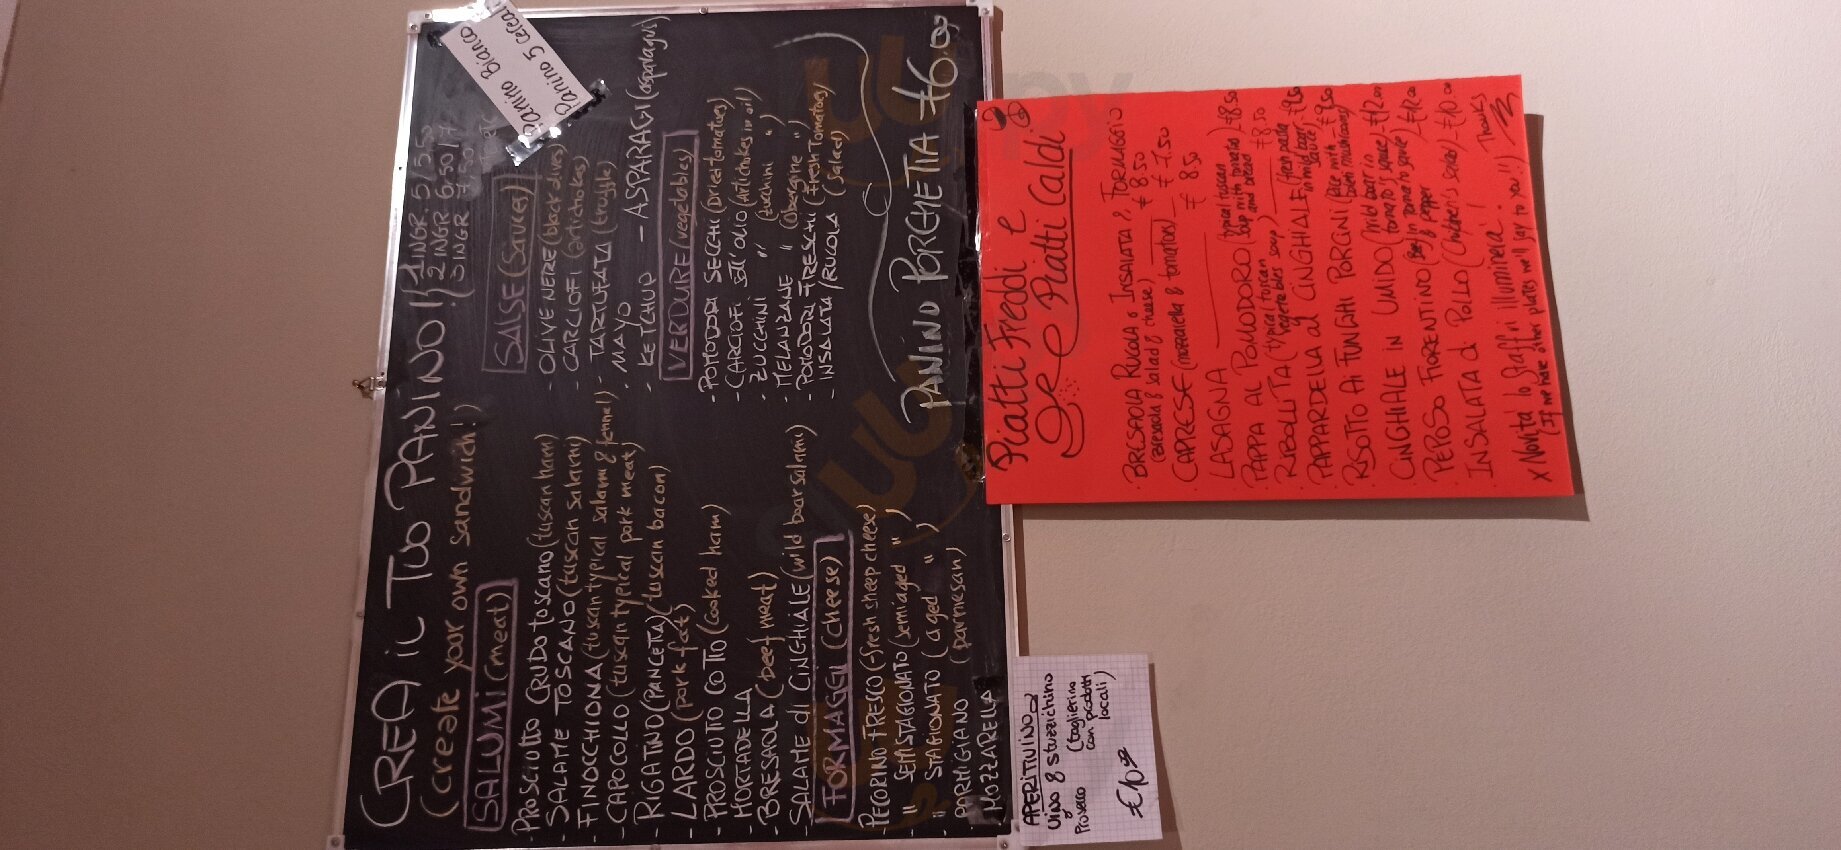 CREA iL TUO PANINO!!
(create your own sandwich!)
1 INGR. 5/5.50
2 INGR 6.50/7
3 INGR
Panino Bianco
Panino 5 cereal
SALUMI (meat)
- PROSCIUTTO CRUDO toscano (tuscan ham)
- SALAME TOSCANO (tuscan salami)
- FINOCCHIONA (tuscan typical salami & fennel)
- CAPOCOLLO (tuscan typical pork meat)
- RIGATINO (PANCETTA) (tuscan bacon)
- LARDO (pork fat)
- PROSCIUTTO COTTO (cooked ham)
- MORTADELLA
- BRESAOLA (beef meat)
- SALAME di CINGHIALE (wild boar salami)
FORMAGGI (cheese)
- PECORINO FRESCO (fresh sheep cheese)
- " SEMISTAGIONATO (semiaged " )
- " STAGIONATO (aged " )
- PARMIGIANO (parmesan)
- MOZZARELLA
SALSE (Sauces)
- OLIVE NERE (black olives)
- CARCIOFI (artichokes)
- TARTUFATA (truffle)
- MAYO
- KETCHUP - ASPARAGI (asparagus)
VERDURE (vegetables)
- POMODORI SECCHI (Dried tomatoes)
- CARCIOFI sott'OLIO (artichokes in oil)
- ZUCCHINI " (zucchini ")
- MELANZANE " (obergine ")
- POMODORI FRESCHI (fresh tomatoes)
- INSALATA/RUCOLA (salad)
PANINO PORCHETTA €6.00
APERITIVINO
Vino & stuzzichino
Prosecco (taglierino
con prodotti
locali)
€10
Piatti Freddi e
Piatti Caldi
- BRESAOLA RUCOLA o INSALATA & FORMAGGIO
(Bresaola & salad & cheese) € 8.50
- CAPRESE (mozzarella & tomatoes) € 7.50
- LASAGNA € 8.50
- PAPPA AL POMODORO (typical tuscan soup with tomatos and bread) €8.50
- RIBOLLITA (typical tuscan vegetables soup) € 8.50
- PAPPARDELLA al CINGHIALE (fresh pasta in wild boar sauce) €9.50
- RISOTTO AI FUNGHI PORCINI (Rice with porcini mushrooms) - €9.50
- CINGHIALE IN UMIDO (wild boar in tomato's sauce) - €12.00
- PEPOSO FIORENTINO (Beef in tomato sauce & pepper) - €12.00
- INSALATA di POLLO (chicken's salad) - €10.00
x Novità lo Staff vi illuminerà!
(If we have other plates we'll say to you!!) Thanks